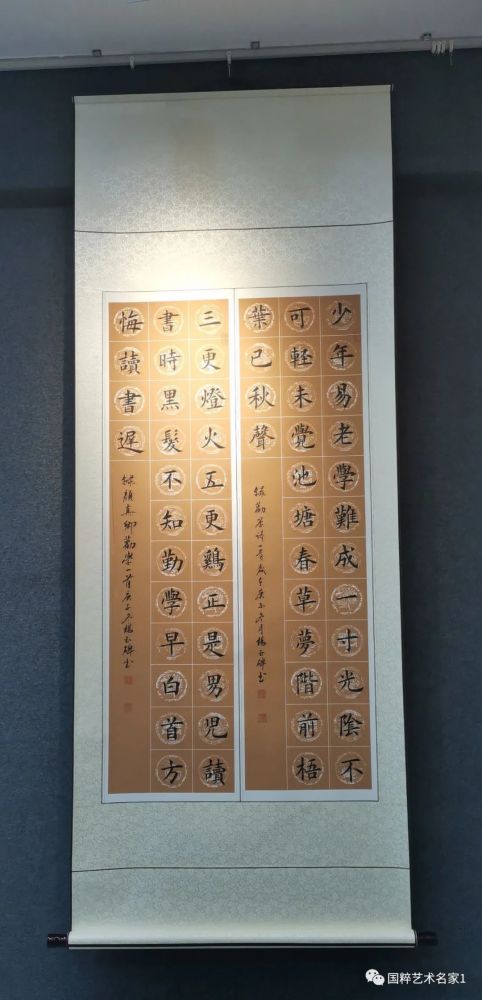 少年易老學難成一寸光陰不
可輕未覺池塘春草夢階前梧
葉已秋聲
録勸學詩一首
三更燈火五更鷄正是男児讀
書時黑髮不知勤學早白首方
悔讀書遲
録顔真卿勸學一首庚子冬
国粹艺术名家1